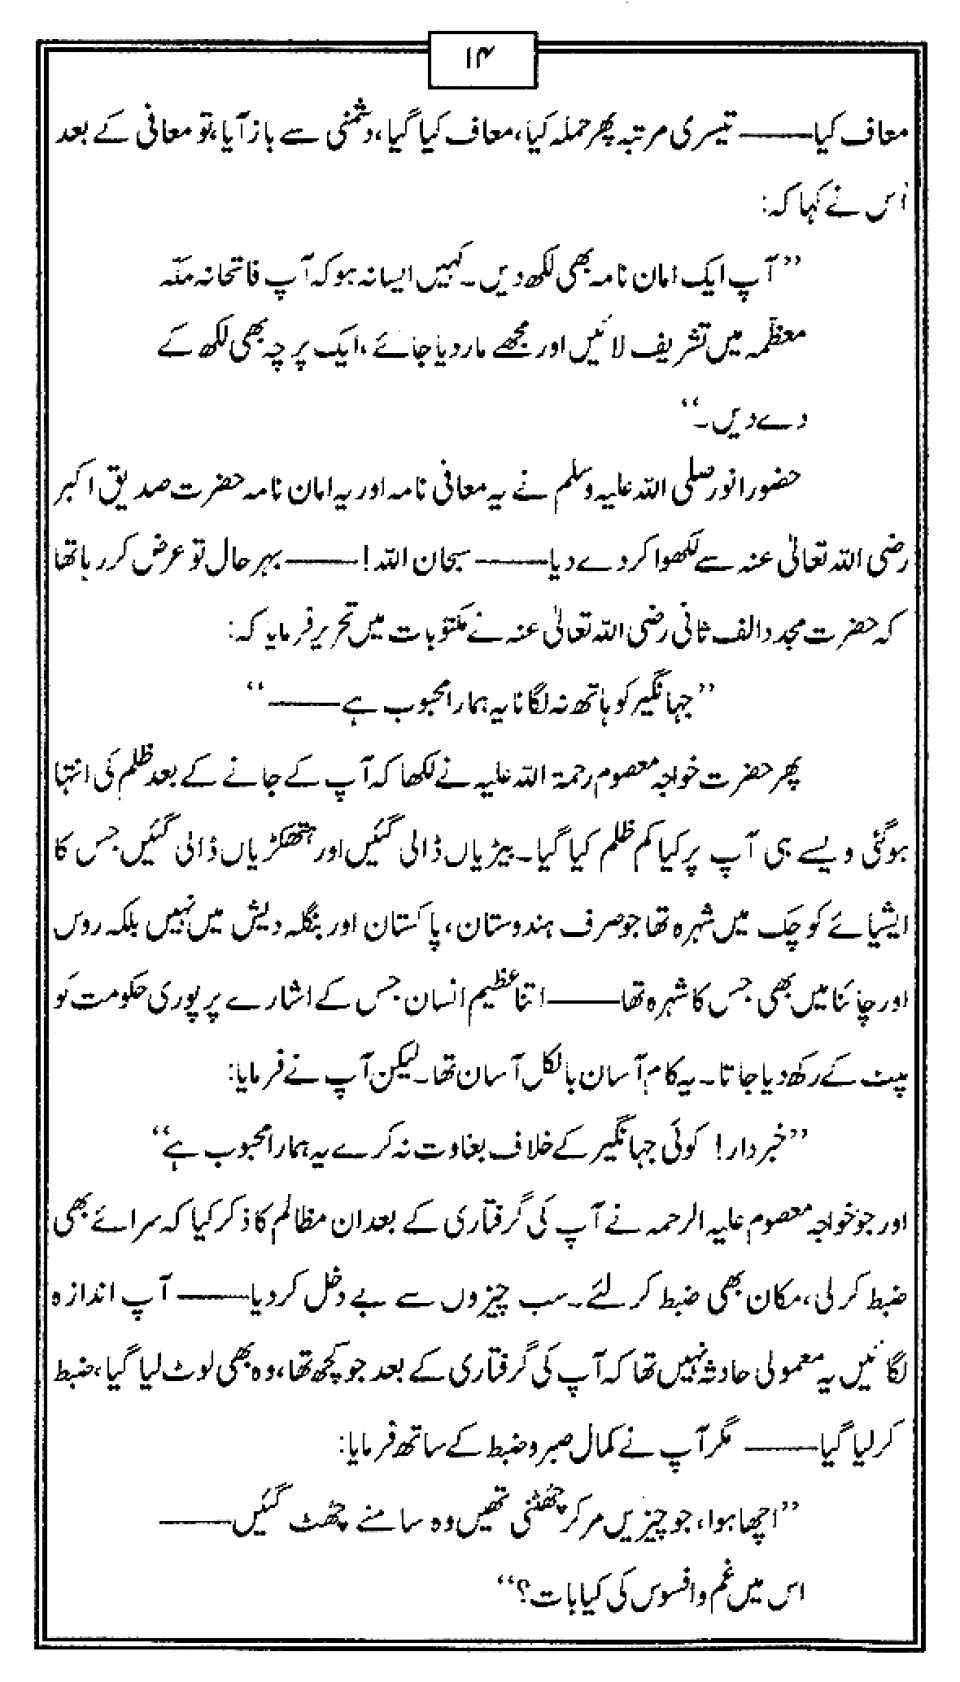 ۱۴
معاف کیا——— تیسری مرتبہ پھر حملہ کیا، معاف کیا گیا، دشمنی سے باز آیا، تو معافی کے بعد
اُس نے کہا کہ:
’’آپ ایک امان نامہ بھی لکھ دیں۔ کہیں ایسا نہ ہو کہ آپ فاتحانہ مکّہ
معظّمہ میں تشریف لائیں اور مجھے مار دیا جائے، ایک پرچہ بھی لکھ کے
دے دیں۔‘‘
حضور انور صلی اللہ علیہ وسلم نے یہ معافی نامہ اور یہ امان نامہ حضرت صدیق اکبر
رضی اللہ تعالیٰ عنہ سے لکھوا کر دے دیا——— سبحان اللہ!——— بہر حال تو عرض کر رہا تھا
کہ حضرت مجدد الف ثانی رضی اللہ تعالیٰ عنہ نے مکتوبات میں تحریر فرمایا کہ:
’’جہانگیر کو ہاتھ نہ لگانا یہ ہمارا محبوب ہے———‘‘
پھر حضرت خواجہ معصوم رحمۃ اللہ علیہ نے لکھا کہ آپ کے جانے کے بعد ظلم کی انتہا
ہوگئی ویسے ہی آپ پر کیا کم ظلم کیا گیا۔ بیڑیاں ڈالی گئیں اور ہتھکڑیاں ڈالی گئیں جس کا
ایشیائے کوچک میں شہرہ تھا جو صرف ہندوستان، پاکستان اور بنگلہ دیش میں نہیں بلکہ روس
اور چائنا میں بھی جس کا شہرہ تھا——— اتنا عظیم انسان جس کے اشارے پر پوری حکومت کو
پلٹ کے رکھ دیا جاتا۔ یہ کام آسان بالکل آسان تھا۔ لیکن آپ نے فرمایا:
’’خبردار! کوئی جہانگیر کے خلاف بغاوت نہ کرے یہ ہمارا محبوب ہے‘‘
اور جو خواجہ معصوم علیہ الرحمہ نے آپ کی گرفتاری کے بعد ان مظالم کا ذکر کیا کہ سرائے بھی
ضبط کر لی، مکان بھی ضبط کر لئے۔ سب چیزوں سے بے دخل کر دیا——— آپ اندازہ
لگائیں یہ معمولی حادثہ نہیں تھا کہ آپ کی گرفتاری کے بعد جو کچھ تھا، وہ بھی لوٹ لیا گیا، ضبط
کر لیا گیا——— مگر آپ نے کمال صبر و ضبط کے ساتھ فرمایا:
’’اچھا ہوا، جو چیزیں مر کر چھٹنی تھیں وہ سامنے چھٹ گئیں———
اس میں غم و افسوس کی کیا بات؟‘‘